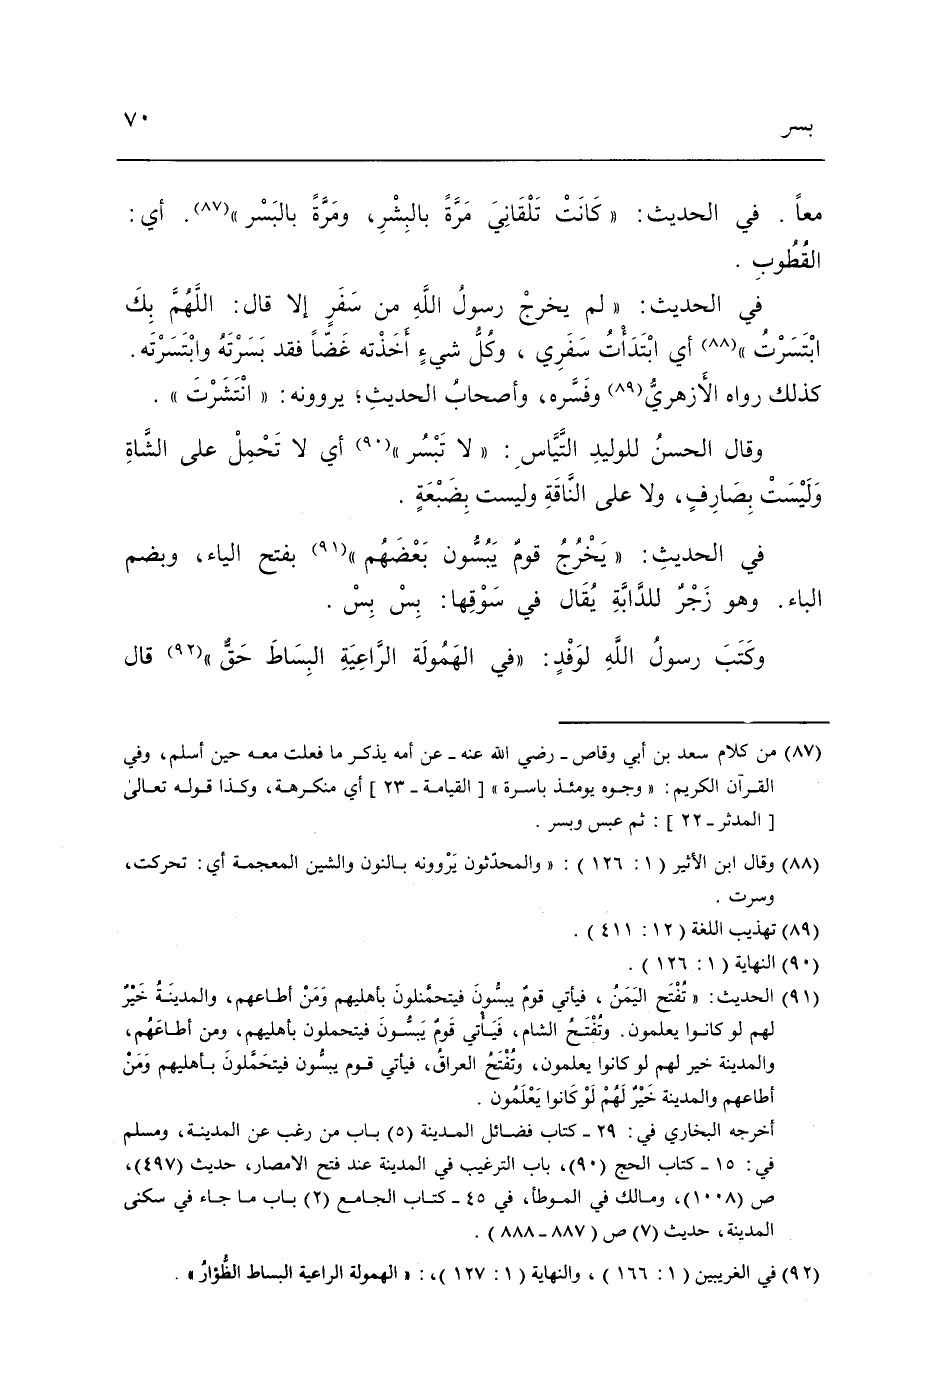 بسر ٧٠
معاً . في الحديث : « كَانَتْ تَلْقَانِيَ مَرَّةً بالبِشْرِ ، ومَرَّةً بالبَسْر »(٨٧) . أي :
القُطُوبِ .
في الحديث : « لم يخرجْ رسولُ اللَّهِ من سَفَرٍ إلا قال : اللَّهُمَّ بِكَ
ابْتَسَرْتُ »(٨٨) أي ابْتَدَأْتُ سَفَرِي ، وكُلُّ شيءٍ أَخَذْته غَضّاً فقد بَسَرْتَهُ وابْتَسَرْتَه .
كذلك رواه الأَزهريُّ(٨٩) وفَسَّره ، وأصحابُ الحديثِ ؛ يروونه : « انْتَشَرْتَ » .
وقال الحسنُ للوليدِ التَّيَّاسِ : « لا تَبْسُر »(٩٠) أي لا تَحْمِلْ على الشَّاةِ
وَلَيْسَتْ بِصَارِفٍ ، ولا على النَّاقَةِ وليست بِضَبْعَةٍ .
في الحديثِ : « يَخْرُجُ قومٌ يَبُسُّون بَعْضَهُم »(٩١) بفتح الياء ، وبضم
الباء . وهو زَجْرٌ للدَّابَّةِ يُقَال في سَوْقِها : بِسْ بِسْ .
وكَتَبَ رسولُ اللَّهِ لوَفْدٍ : «في الهَمُولَة الرَّاعِيَةِ البِسَاطَ حَقٌّ »(٩٢) قال
(٨٧) من كلام سعد بن أبي وقاص ـ رضي الله عنه ـ عن أمه يذكر ما فعلت معه حين أسلم ، وفي
القرآن الكريم : « وجوه يومئذ باسرة » [ القيامة ـ ٢٣ ] أي منكرهة ، وكذا قوله تعالى
[ المدثر ـ ٢٢ ] : ثم عبس وبسر .
(٨٨) وقال ابن الأثير ( ١ : ١٢٦ ) : « والمحدّثون يَرْوونه بالنون والشين المعجمة أي : تحركت ،
وسرت .
(٨٩) تهذيب اللغة ( ١٢ : ٤١١ ) .
(٩٠) النهاية ( ١ : ١٢٦ ) .
(٩١) الحديث : « تُفْتَح اليَمَنُ ، فيأتي قومٌ يبسُّونَ فيتحمَّلونَ بأهليهم وَمَنْ أطاعهم ، والمدينَةُ خَيْرٌ
لهم لو كانوا يعلمون . وتُفْتَحُ الشام ، فَيَأْتي قَومٌ يَبسُّونَ فيتحملون بأهليهم ، ومن أطاعَهُم ،
والمدينة خير لهم لو كانوا يعلمون ، وتُفْتَحُ العراقُ ، فيأتي قوم يبسُّون فيتحَمَّلونَ بأهليهم وَمَنْ
أطاعهم والمدينة خَيْرٌ لَهُمْ لَوْ كَانوا يَعْلَمُون .
أخرجه البخاري في : ٢٩ ـ كتاب فضائل المدينة (٥) باب من رغب عن المدينة ، ومسلم
في : ١٥ ـ كتاب الحج (٩٠) ، باب الترغيب في المدينة عند فتح الامصار ، حديث (٤٩٧) ،
ص (١٠٠٨) ، ومالك في الموطأ ، في ٤٥ ـ كتاب الجامع (٢) باب ما جاء في سكنى
المدينة ، حديث (٧) ص ( ٨٨٧ ـ ٨٨٨ ) .
(٩٢) في الغريبين ( ١ : ١٦٦ ) ، والنهاية ( ١ : ١٢٧ ) ، : « الهمولة الراعية البساط الظُّؤارُ » .